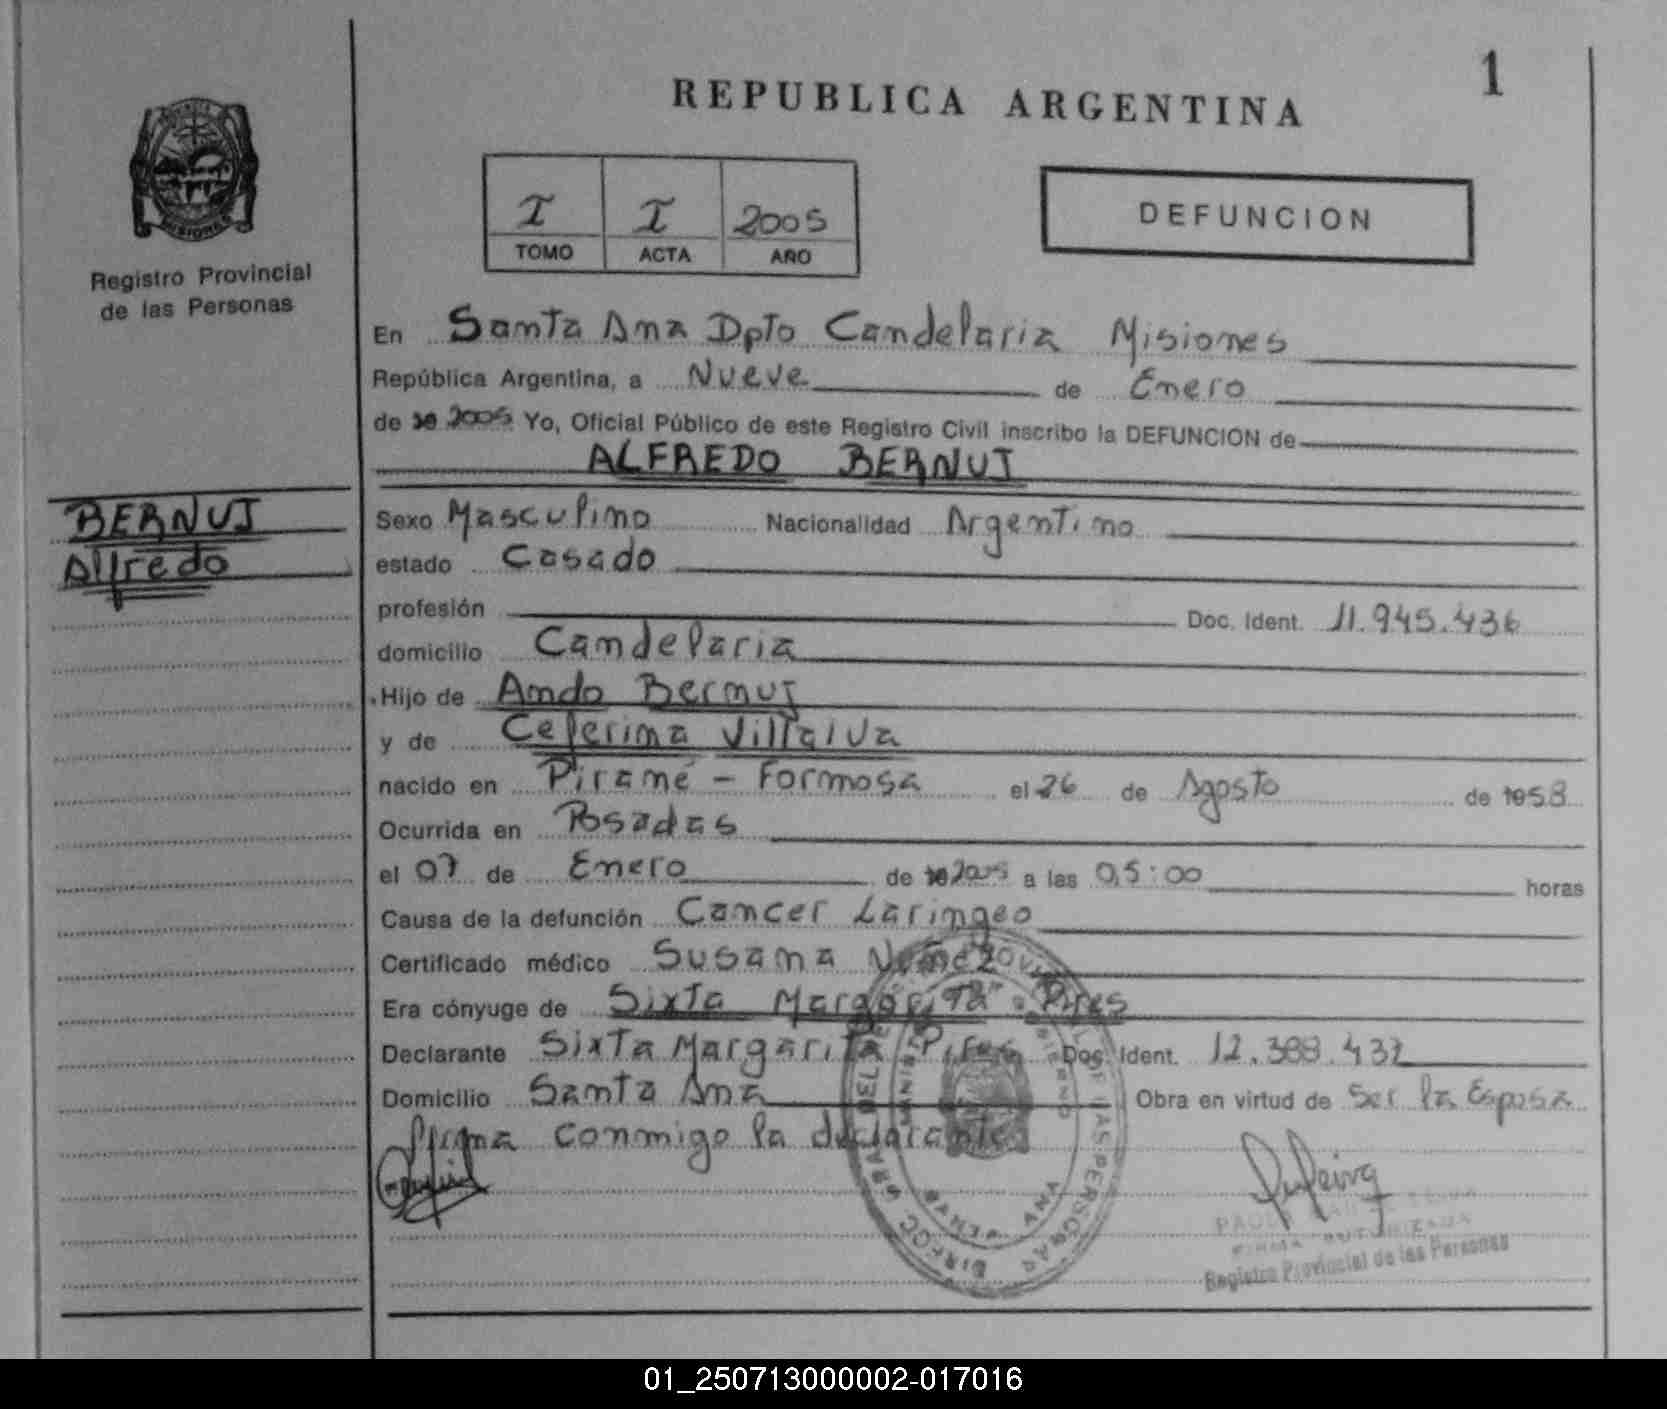 1
REPUBLICA ARGENTINA
Registro Provincial
de las Personas
I I 2005
TOMO ACTA AÑO
DEFUNCION
En Santa Ana Dpto Candelaria Misiones
República Argentina, a Nueve de Enero
de 2005 Yo, Oficial Público de este Registro Civil inscribo la DEFUNCION de
ALFREDO BERNUI
BERNUI
Alfredo
Sexo Masculino Nacionalidad Argentino
estado Casado
profesión Doc. Ident. 11.945.436
domicilio Candelaria
Hijo de Ando Bernui
y de Ceferina Villalva
nacido en Pirané - Formosa el 26 de Agosto de 1958
Ocurrida en Posadas
el 07 de Enero de 2005 a las 05:00 horas
Causa de la defunción Cancer Laringeo
Certificado médico Susana
Era cónyuge de Sixta Margarita Pires
Declarante Sixta Margarita Pires Doc. Ident. 12.388.432
Domicilio Santa Ana Obra en virtud de Ser la Esposa
firma conmigo la declarante
FIRMA AUTORIZADA
Registro Provincial de las Personas
01_250713000002-017016